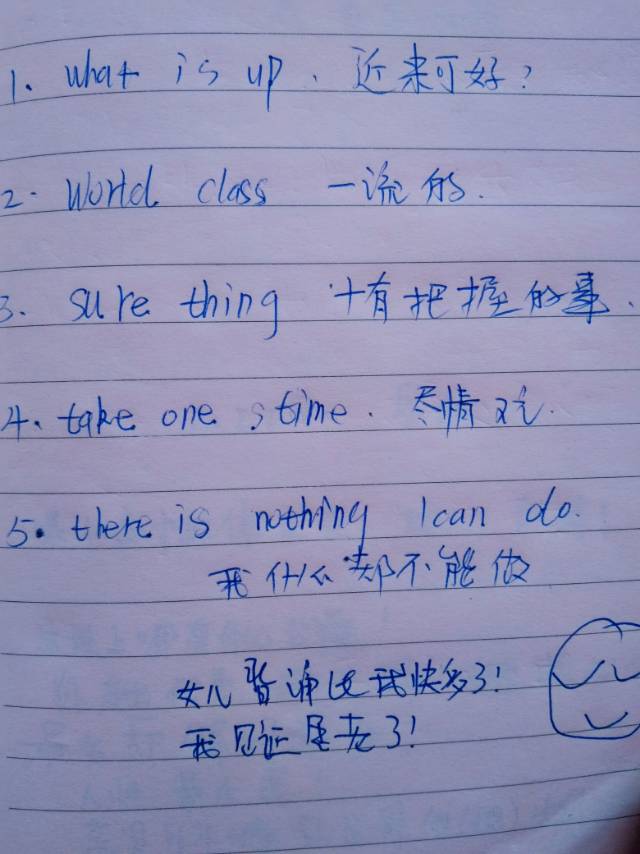 1. what is up. 近来可好?
2. World class 一流的.
3. sure thing 十有把握的事.
4. take one s time. 尽情玩.
5. there is nothing I can do.
我什么都不能做
女儿背诵比我快多了!
我见证是老了!